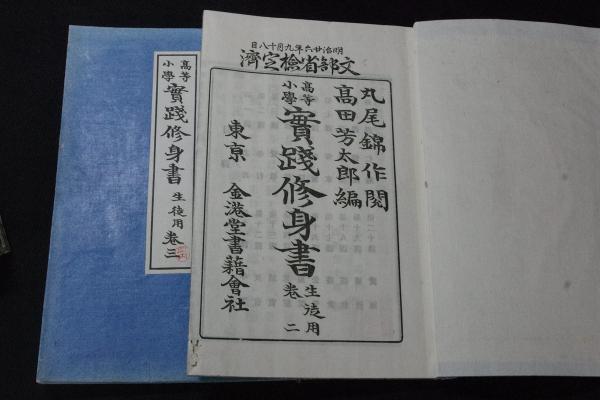 明治廿六年九月十八日
文部省檢定濟
丸尾錦作閱
高田芳太郎編
高等
小學
實踐修身書
生徒用
卷二
東京 金港堂書籍會社
高等
小學
實踐修身書
生徒用
卷三